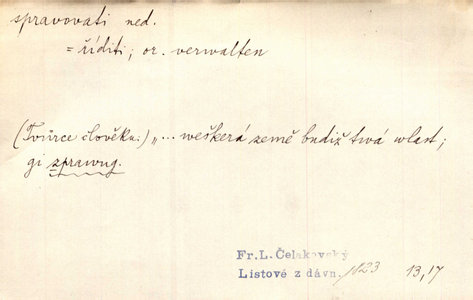 spravovati ned.
= říditi; or. verwalten
(Tvůrce člověku.) „... weškerá země budiž twá wlast;
gi zprawug.
Fr. L. Čelakovský
Listové z dávn. 1823 13,17